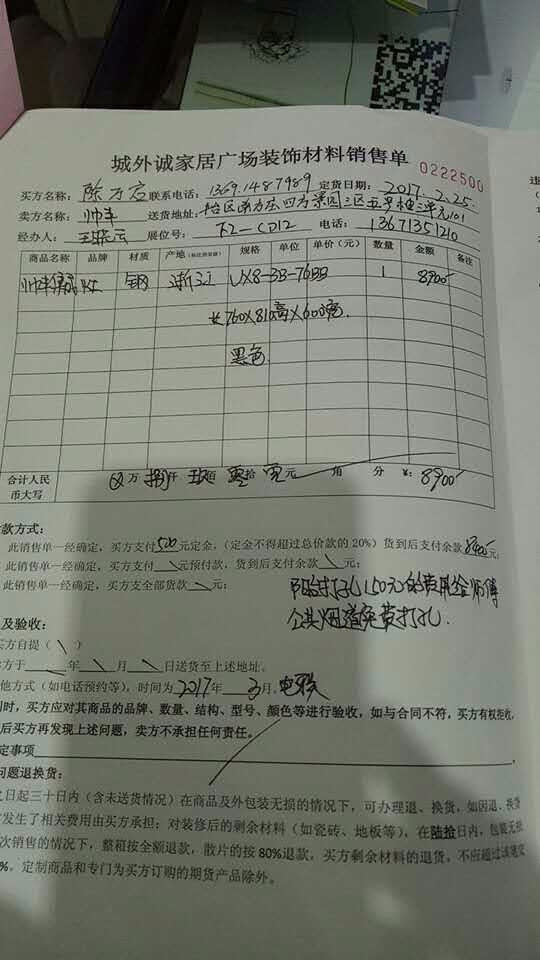 城外诚家居广场装饰材料销售单 0222500
买方名称: 陈万 联系电话: 13691487989 定货日期: 2017.2.25.
卖方名称: 帅丰 送货地址: 台区 四方景园三区五号楼三单元101
经办人: 王晓云 展位号: F2-CD12 电话: 13671351210
商品名称 品牌 材质 产地(标注到省级) 规格 单位 单价(元) 数量 金额 备注
帅丰 钢 浙江 UX8-3B-76BB 1 8900
长760X810高X600宽.
黑色.
合计人民币大写 万 捌仟 玖佰 零拾 零元 角 分 ¥: 8900
款方式:
此销售单一经确定,买方支付500元定金,(定金不得超过总价款的20%)货到后支付余款8400元;
此销售单一经确定,买方支付 元预付款,货到后支付余款 元;
此销售单一经确定,买方支全部货款 元;
打孔150元的费用给师傅
公共烟道免费打孔.
及验收:
买方自提( \ )
方于 年 月 日送货至上述地址。
他方式(如电话预约等),时间为2017年 3月。电联
时,买方应对其商品的品牌、数量、结构、型号、颜色等进行验收,如与合同不符,买方有权拒收,
后买方再发现上述问题,卖方不承担任何责任。
定事项
问题退换货:
之日起三十日内(含未送货情况)在商品及外包装无损的情况下,可办理退、换货,如因退、换货
发生了相关费用由买方承担;对装修后的剩余材料(如瓷砖、地板等),在陆拾日内,包装无损
次销售的情况下,整箱按全额退款,散片的按80%退款,买方剩余材料的退货,不应超过该笔交
%。定制商品和专门为买方订购的期货产品除外。